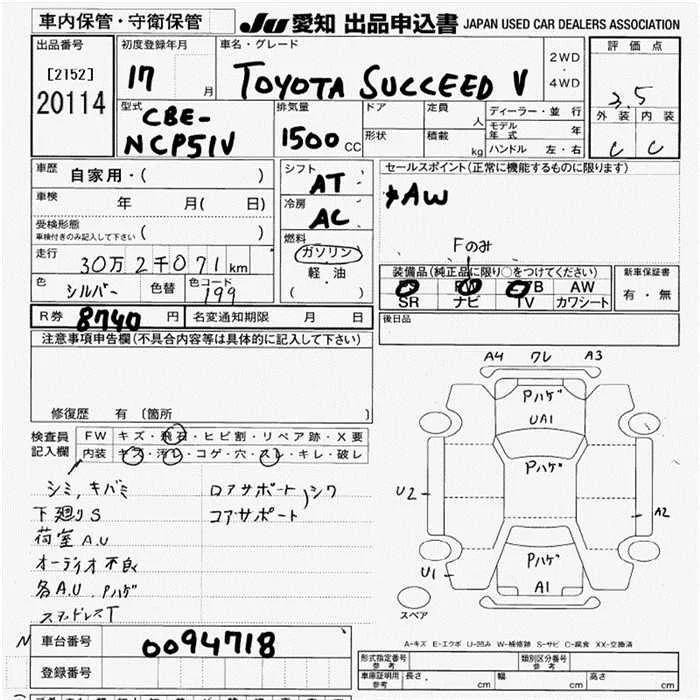 車内保管・守衛保管
JU 愛知 出品申込書 JAPAN USED CAR DEALERS ASSOCIATION
出品番号
[2152]
20114
初度登録年月
17 月
車名・グレード
TOYOTA SUCCEED V
2WD
・
4WD
評価点
3.5
外装 内装
C C
型式
CBE-
NCP51V
排気量
1500 CC
ドア
定員 人
形状
積載 kg
ディーラー・並行
モデル年式 年
ハンドル 左・右
車歴 自家用・( )
車検 年 月( 日)
受検形態
車検付きのみ記入して下さい ( )
走行 30万2千071km
色 シルバー 色替 色コード 199
シフト
AT
冷房
AC
燃料
ガソリン
軽・油
( )
セールスポイント(正常に機能するものに限ります)
AW
Fのみ
装備品(純正品に限り○をつけてください)
TB AW
SR ナビ TV カワシート
新車保証書
有・無
R券 8740 円 名変通知期限 月 日
後日品
注意事項申告欄(不具合内容等は具体的に記入して下さい)
修復歴 有〔箇所 〕
検査員
記入欄
FW キズ・飛石・ヒビ割・リペア跡・X要
内装 キズ・汚レ・コゲ・穴・スレ・キレ・破レ
シミ,キバミ
下廻りS
荷室A.U
オーディオ不良
各A.U Pハゲ
スタッドレスT
ロアサポート)シワ
コアサポート
A4 ワレ A3
Pハゲ
UA1
Pハゲ
U2
A2
Pハゲ
A1
U1
スペア
A-キズ E-エクボ U-凹み W-補修跡 S-サビ C-腐食 XX-交換済
N
車台番号 0094718
登録番号
形式指定番号 参考
類別区分番号 参考
車庫証明用 参考 長さ. cm 幅 cm 高さ cm